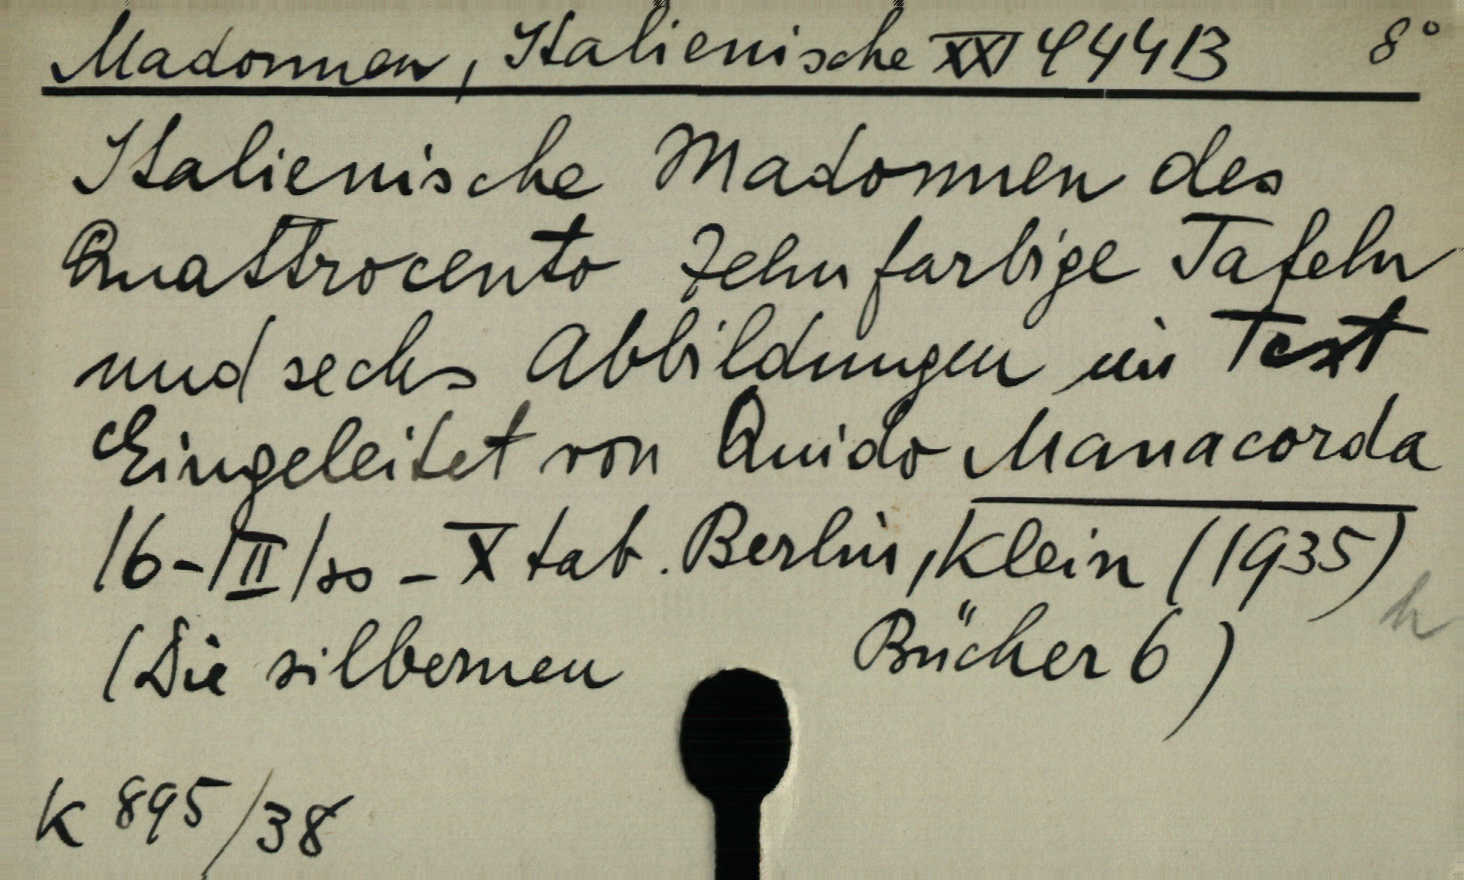 Madonnen, Italienische XXI 444B 8°
Italienische Madonnen des
Quattrocento Zehn farbige Tafeln
und sechs Abbildungen im Text
Eingeleitet von Quido Manacorda
16-/II/ - X tab. Berlin, Klein (1935)
h
(Die silbernen Bücher 6)
K 895/38